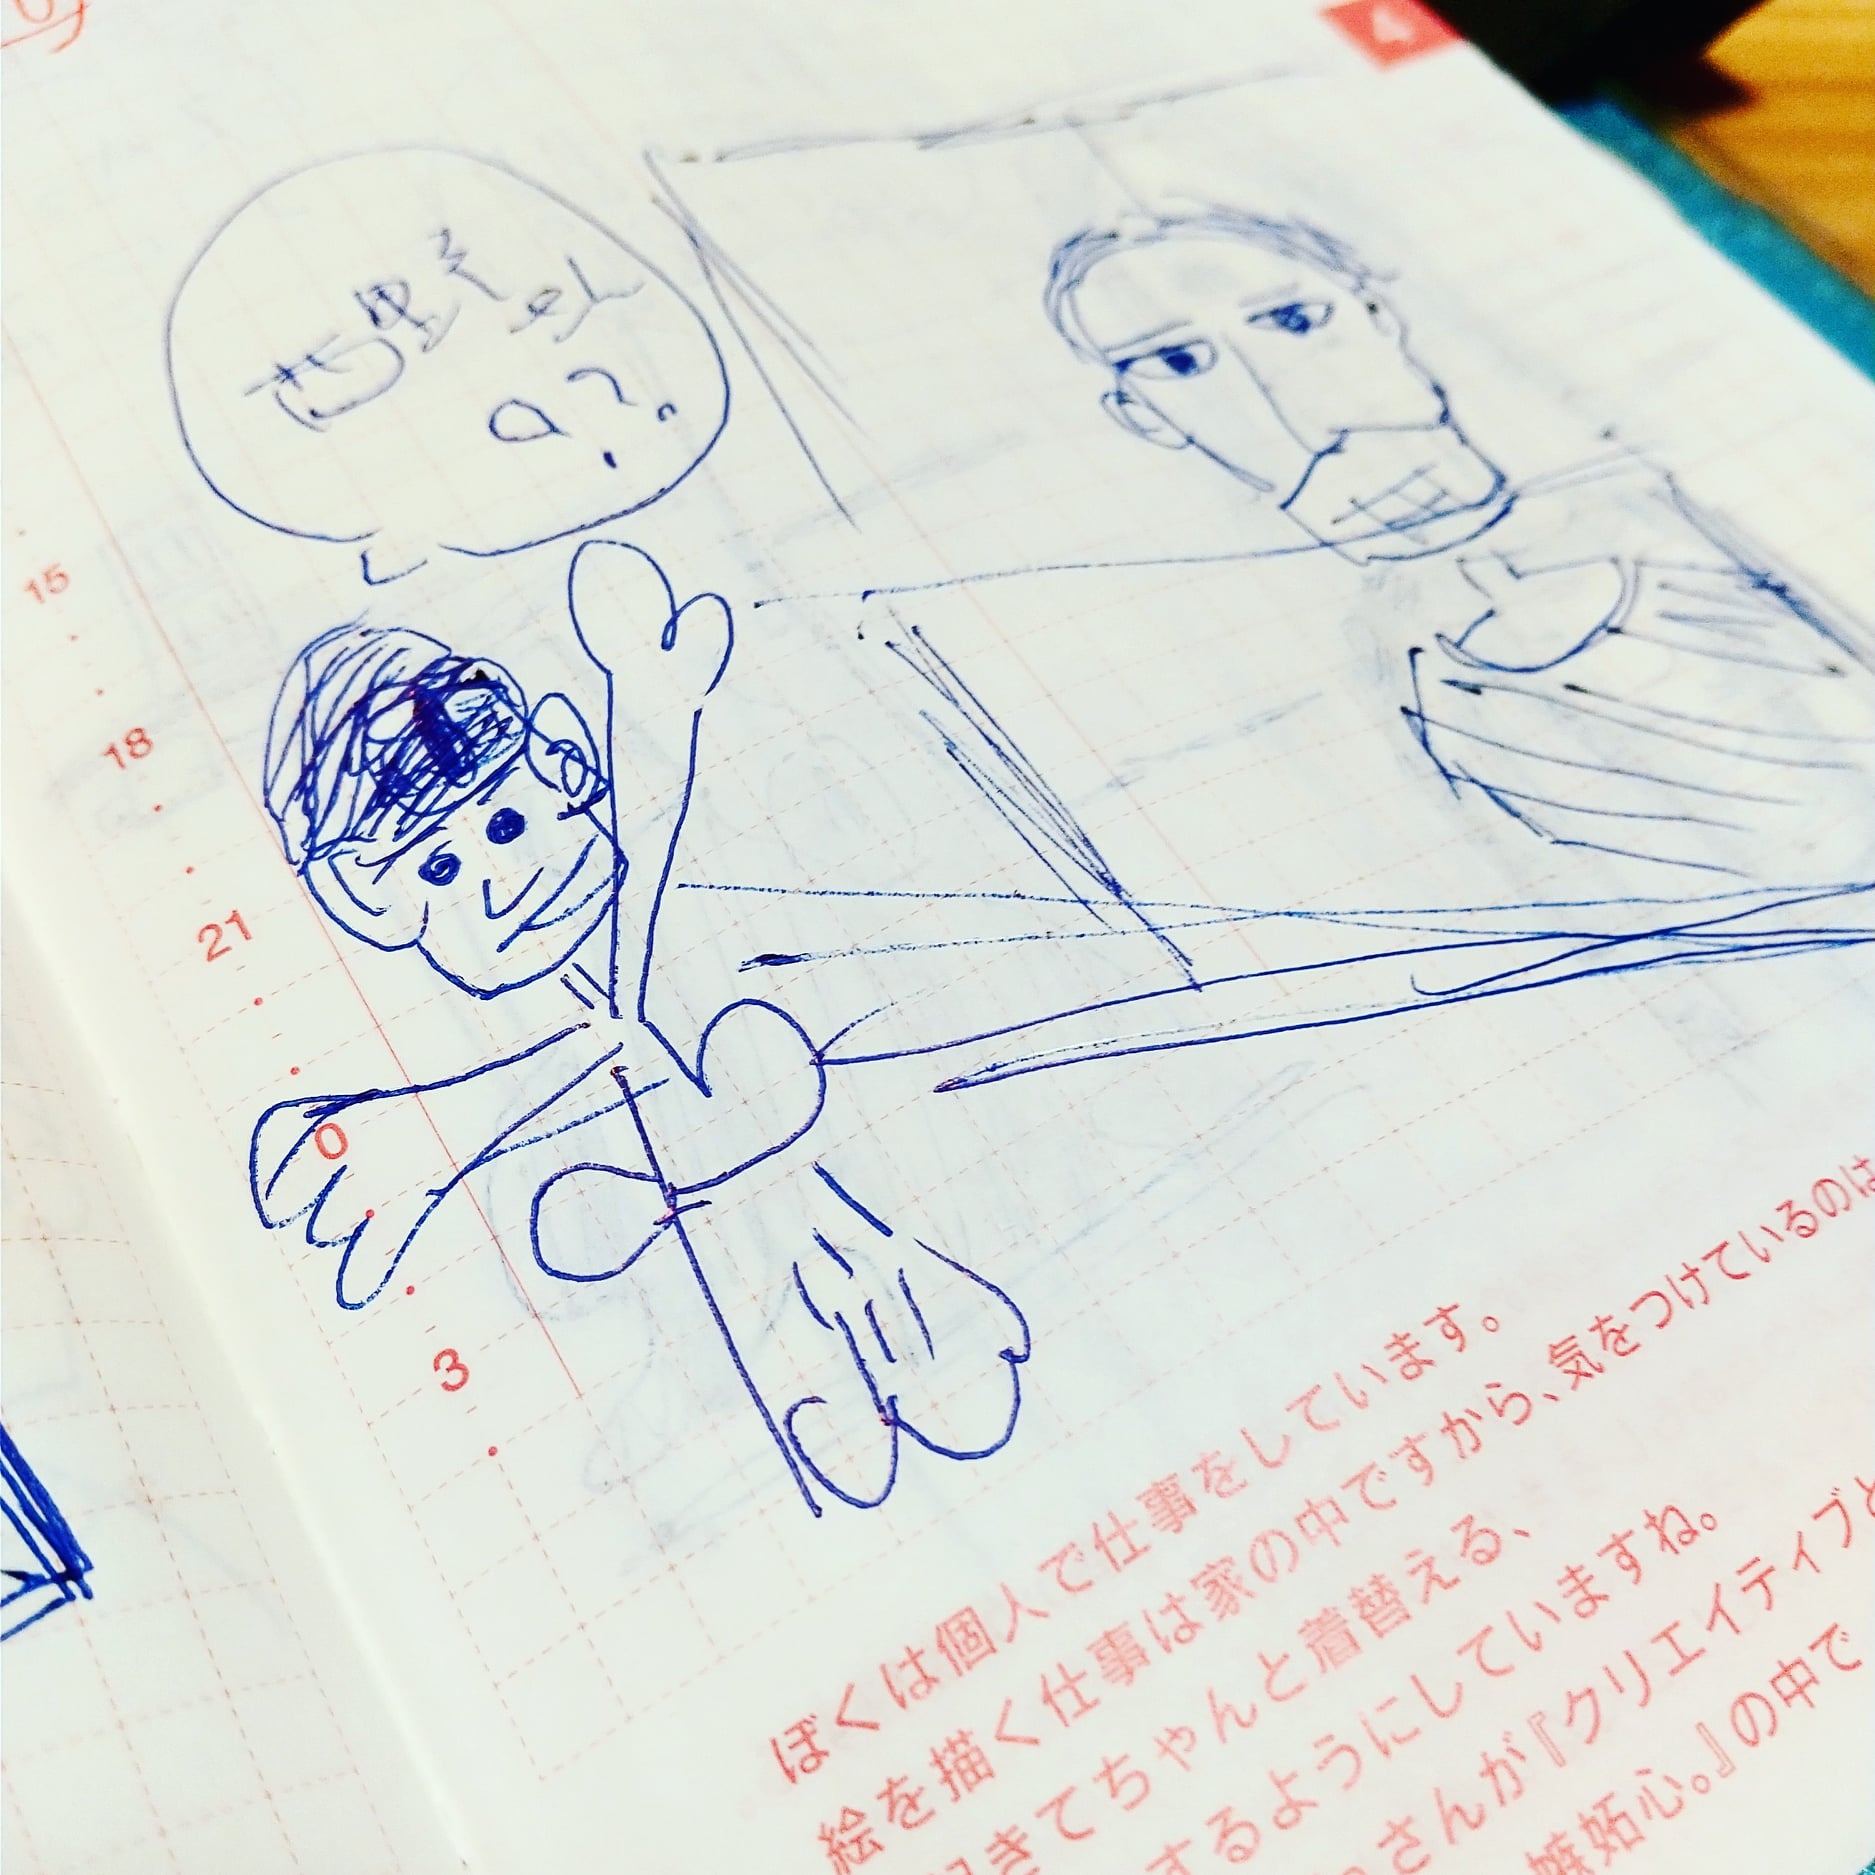 4
15
18
21
0
3
ぼくは個人で仕事をしています。
絵を描く仕事は家の中ですから、気をつけているのは
起きてちゃんと着替える、
するようにしていますね。
さんが『クリエイティブと
嫉妬心。』の中で